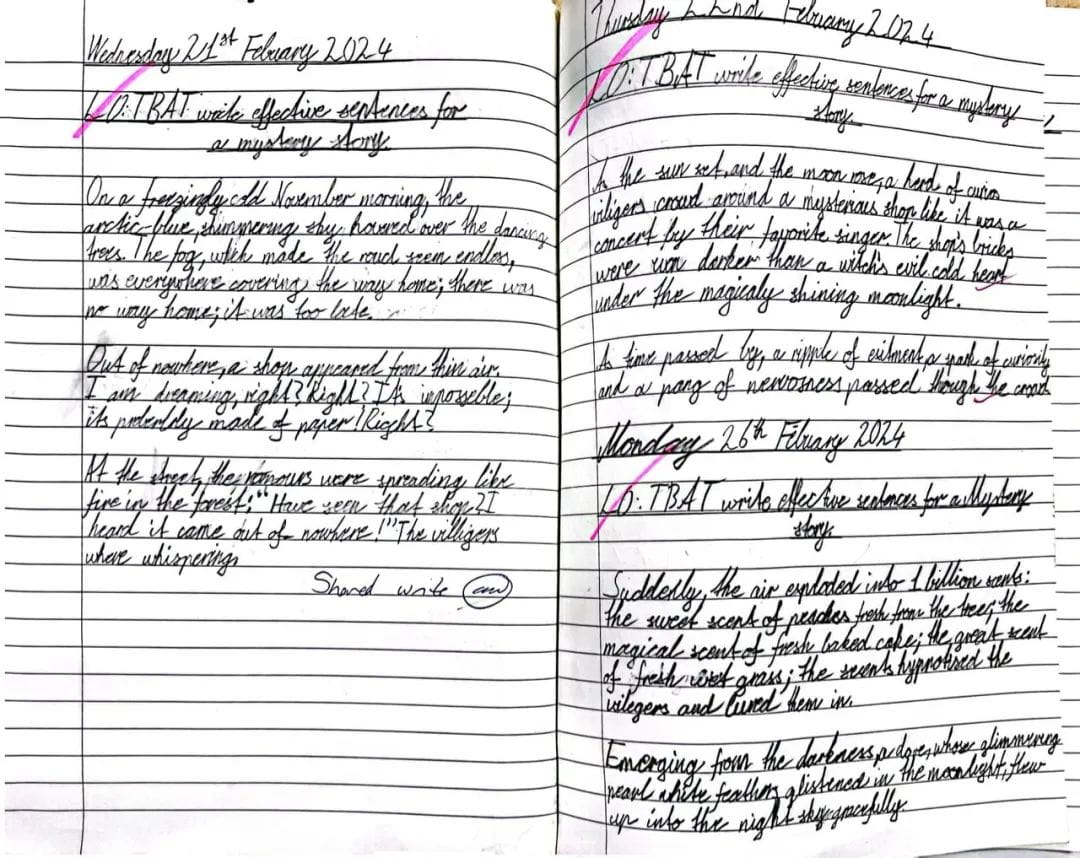 Wednesday 21st Febuary 2024
LO: TBAT write effective sentences for
a mystery story.
On a freezingly cold November morning, the
arctic-blue, shimmering sky hovered over the dancing
trees. The fog, which made the road seem endless,
was everywhere covering the way home; there was
no way home; it was too late.
Out of nowhere, a shop appeared from thin air.
I am dreaming, right? Right? It's imposseble;
its preberbly made of paper! Right?
At the street, the romours were spreading like
fire in the forest: "Have seen that shop? I
heard it came out of nowhere!" The villigers
where whispering
Shared write
Thursday 22nd Febuary 2024
LO: TBAT write effective sentences for a mystery
story.
As the sun set, and the moon rose, a herd of curios
viligers croud around a mysterious shop like it was a
concert by their favorite singer. The shop's bricks
were even darker than a witch's evil cold heart
under the magicaly shining moonlight.
As time passed by, a ripple of exitment, a spark of curiosity
and a pang of nervosness passed though the croud
Monday 26th Febuary 2024
LO: TBAT write effective sentences for a Mystery
story.
Suddenly, the air exploded into 1 billion scents:
the sweet scent of peaches fresh from the tree; the
magical scent of fresh baked cake; the great scent
of fresh wet grass; the scents hypnotised the
vilegers and lured them in.
Emerging from the darkness, a dove, whose glimmering
pearl white feathers glistened in the moonlight, flew
up into the night sky gracefully